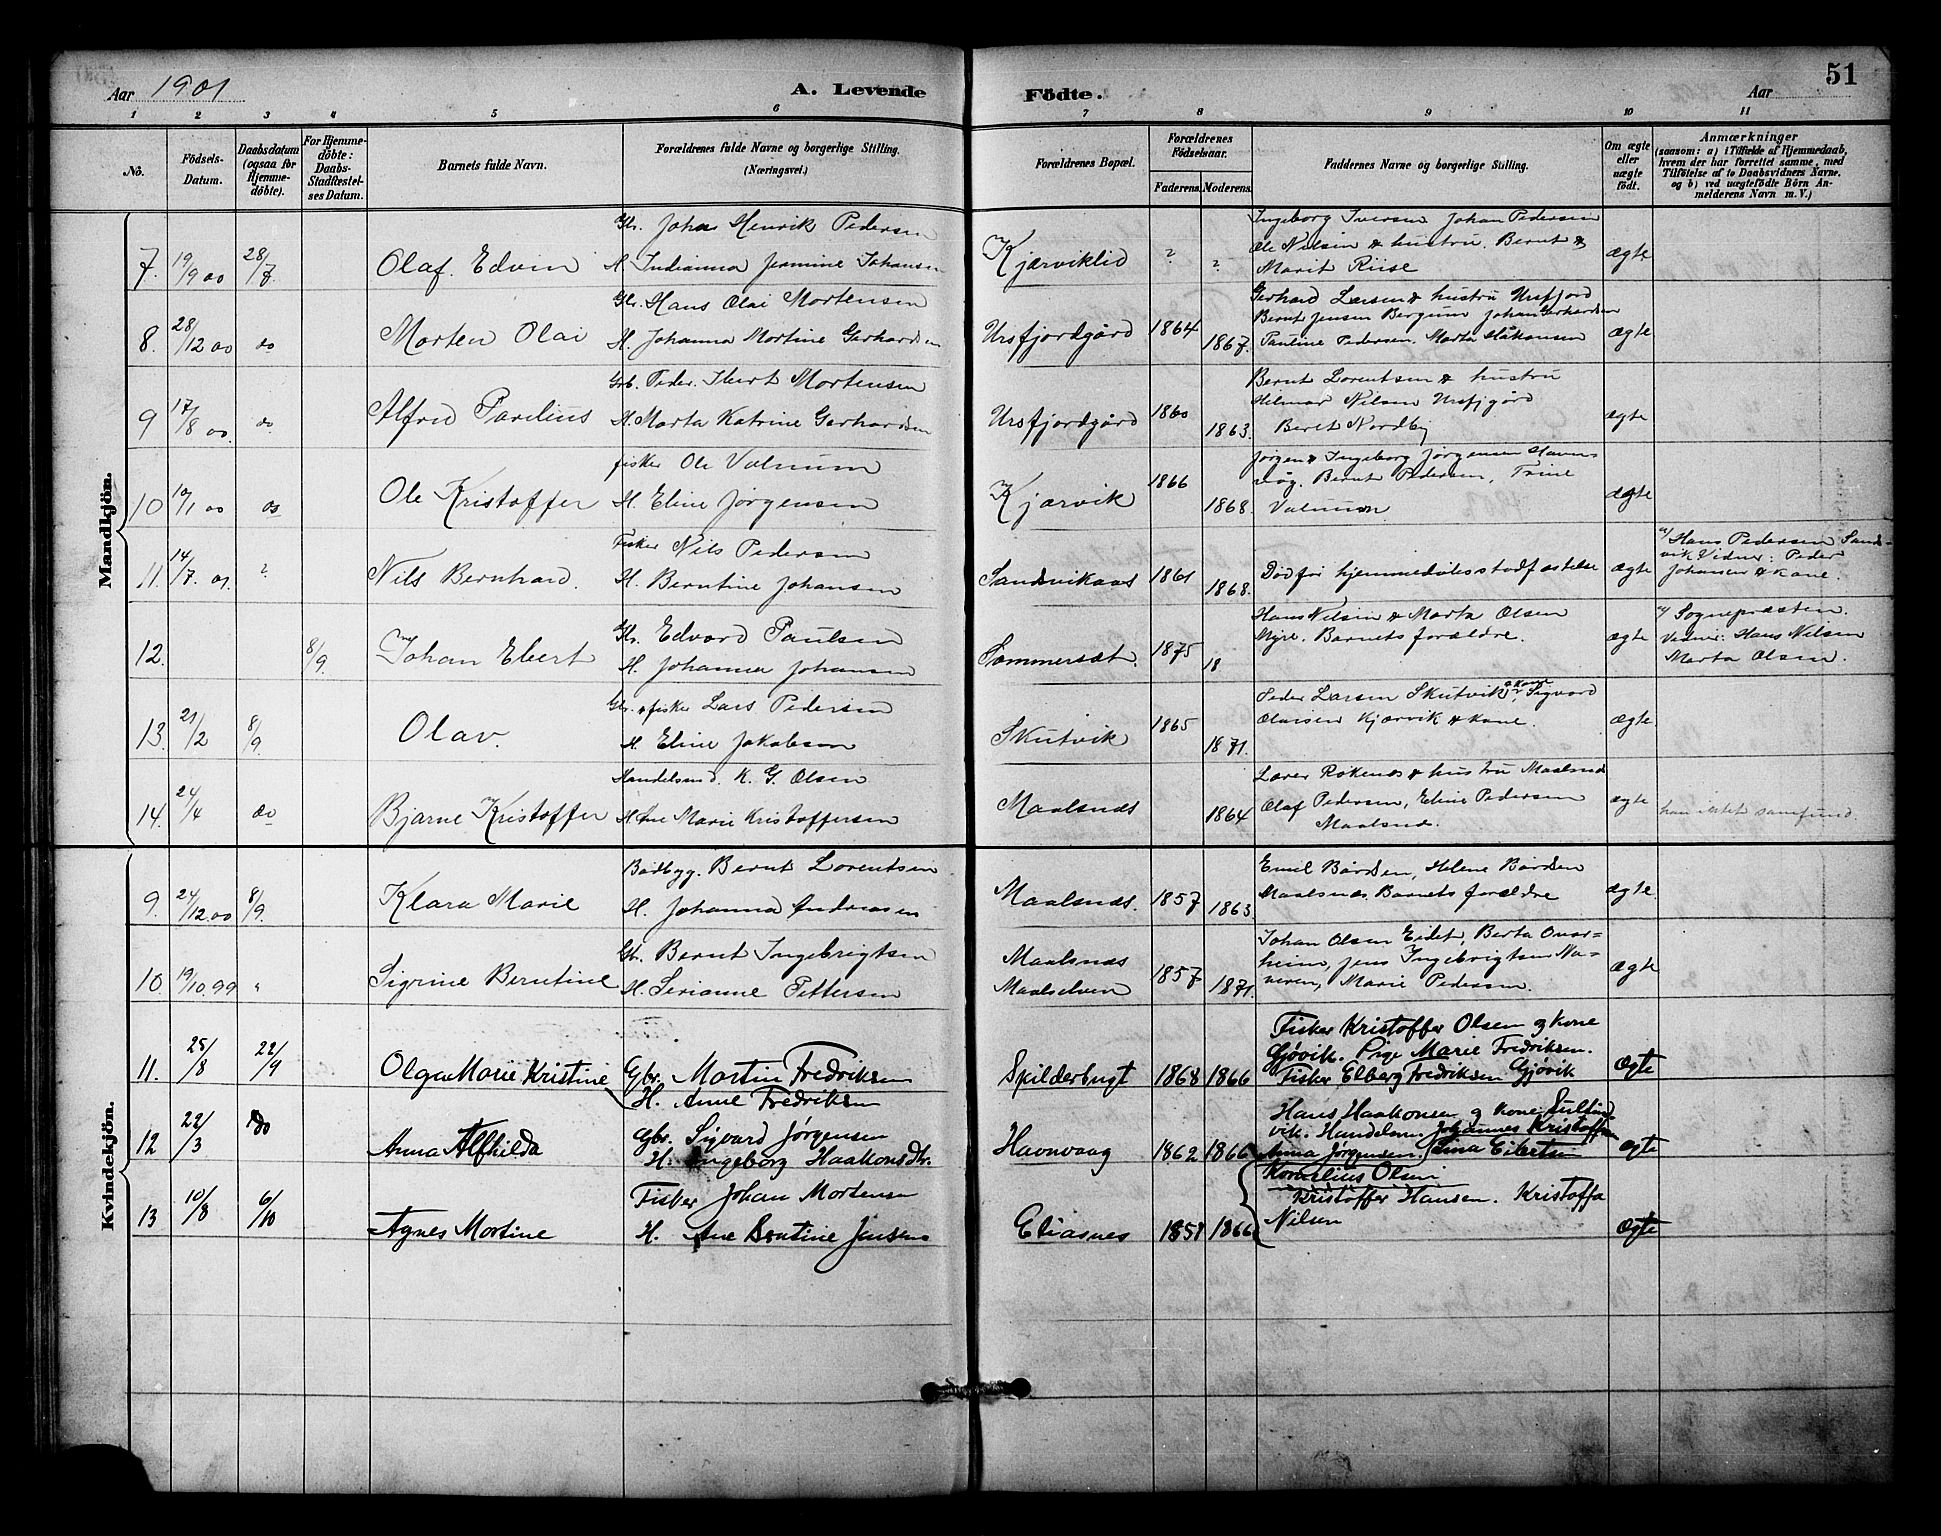 Aar 1901
A. Levende Födte.
51
Aar
1 2 3 4 5 6 7 8 9 10 11
No.
Födsels-Datum.
Daabsdatum (ogsaa for Hjemmedöbte).
For Hjemmedöbte: Daabs-Stadfæstelses Datum.
Barnets fulde Navn.
Forældrenes fulde Navne og borgerlige Stilling. (Næringsvei.)
Forældrenes Bopæl.
Forældrenes Födselsaar.
Faderens. Moderens.
Faddernes Navne og borgerlige Stilling.
Om ægte eller uægte födt.
Anmærkninger
(saasom: a) i Tilfælde af Hjemmedaab, hvem der har forrettet samme, med Tilföielse af to Daabsvidners Navne, og b) ved uægtefödte Börn Anmelderens Navn m. V.)
Mandkjön.
7. 19/9 00 28/7. Olaf. Edvin
Gbr. Johan Henrik Pedersen
H. Indianna Jeamine Johansen
Kjærviklid ? ?
Ingeborg Iversen Johan Pedersen
Ole Nilsen & hustru. Bernt &
Marit Riise
ægte
8. 28/12 00 do Morten Olai
Gbr. Hans Olai Mortensen
H. Johanna Mortine Gerhardsen
Ursfjordgård 1864 1867.
Gerhard Larsen & hustru Ursfjord
Bernt Jensen Bergum Johan Gerhardsen
Pauline Pedersen. Marta Håkonsen
ægte
9 17/8 00. do Alfred Parelius
Grb. Peder. Ibert Mortensen
H. Marta Katrine Gerhardsen
Ursfjordgård 1860 1863.
Bernt Lorentsen & hustru
Hilmar Nilsen Ursfjgård
Beret Nordby
ægte
10 10/1 00 do Ole Kristoffer
fisker Ole Valnum
H. Eline Jørgensen
Kjærvik 1866 1868.
Jørgen & Ingeborg Jørgensen Havn-
våg. Bernt Pedersen, Trine
Valnum
ægte
11. 14/7. 01. ? Nils Bernhard.
Fisker Nils Pedersen
H. Berntine Johansen
Sandsvikaas 1861 1868.
Død før hjemmedåbsstadfæstelse
ægte
a/ Hans Pedersen Sand-
vik Vidner: Peder
Johansen & kone.
12. 8/9. Johan Ebert
Gbr. Edvard Paulsen
H. Johanna Johansen
Sommersæt. 1875 18
Hans Nilsen & Marta Olsen
Myre. Barnets forældre.
ægte
a/ Sognepræsten.
Vidner: Hans Nilsen
Marta Olsen.
13. 21/2 8/9. Olav.
Gbr. & fisker Lars Pedersen
H. Eline Jakobsen
Skutvik 1865 1871.
Peder Larsen Skutvik & kone, Sigvard
Olaisen Kjærvik & kone.
ægte
14. 24/4 do Bjarne Kristoffer
Handelsmd. K. G. Olsen
H. Ane Marie Kristoffersen
Maalsnæs 1864
Lærer Røkenes & hustru Maalsnæs
Olaf Pedersen, Eline Pedersen
Maalsnæs.
ægte
Kvindekjön.
9. 24/12.00 8/9. Klara Marie
Bådbyg. Bernt Lorentsen
H. Johanna Andreasen
Maalsnæs. 1857 1863
Emil Bårdsen, Helene Bårdsen
Maalsnæs. Barnets forældre
ægte
10. 19/10.99 " Sigrine Berntine
Gb. Bernt Ingebrigtsen
H. Serianne Pettersen
Maalsnæs
Maalselven 1857 1871.
Johan Olsen Eidet, Berta Over=
heim, Jens Ingebrigtsen Na=
veren, Marie Pedersen.
ægte
11. 25/8 22/9 Olga Marie Kristine
Gbr. Martin Fredriksen
H. Anne Fredriksen
Spilderbugt 1868 1866
Fisker Kristoffer Olsen og kone
Gjøvik. Pige Marie Fredriksen.
Fisker Elberg Fredriksen Gjøvik
Ægte
12 22/3 do Anna Alfhilda
Gbr. Sigvard Jørgensen
H. Ingeborg Haakonsdtr.
Havnvaag 1862 1866
Hans Haakonsen og kone
vik. Handelsm. Johannes Kristoffersen
Anna Jørgensen. Lina Eibertsen
Kornelius Olsen
ægte
13 10/8 6/10 Agnes Mortine
Fisker Johan Mortensen
H. Ane Berntine Jensen
Eliasnes 1851 1866
Kristoffer Hansen. Kristoffa
Nilsen
Ægte